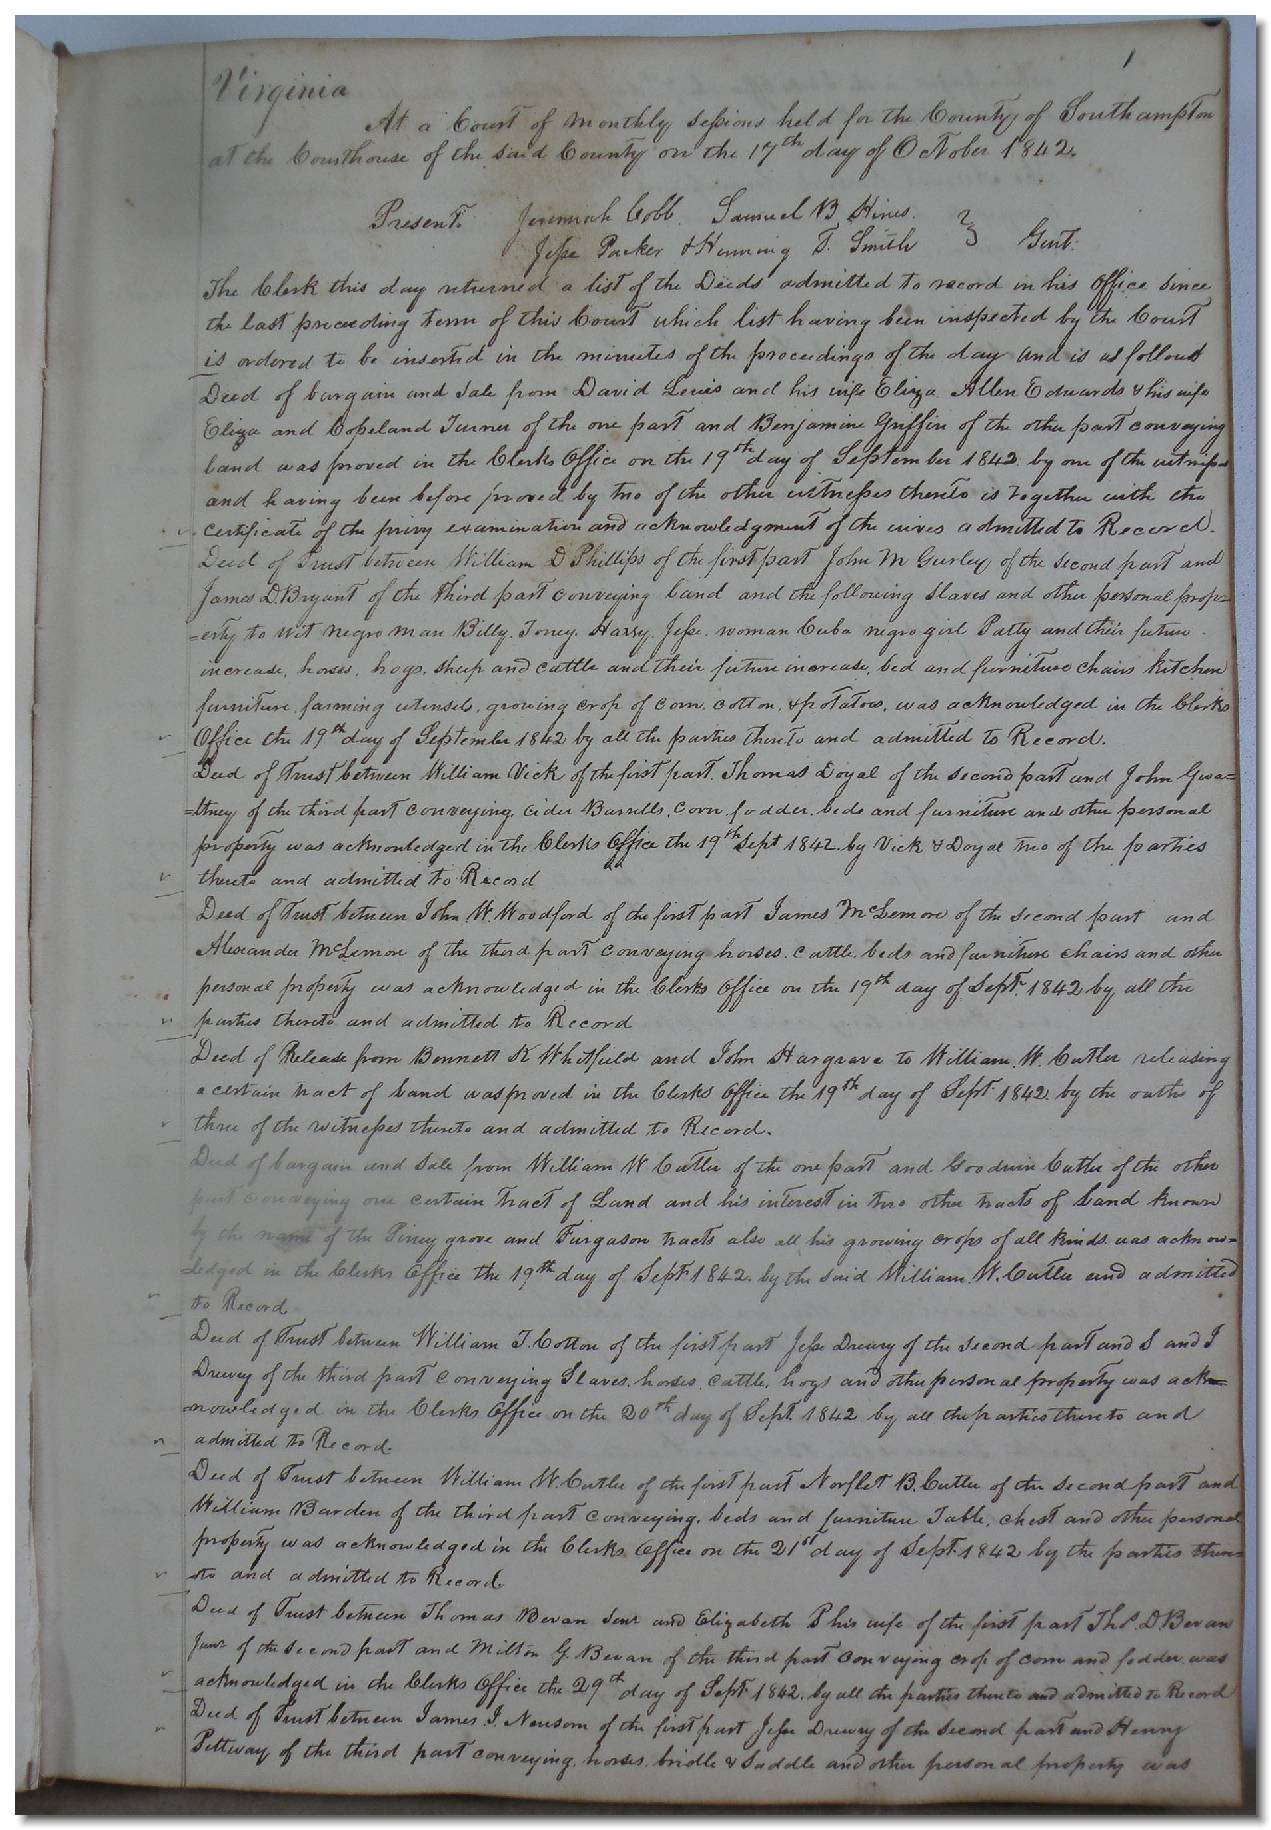 1
Virginia
At a Court of Monthly sessions held for the County of Southampton
at the Courthouse of the said County on the 17th day of October 1842.
Present. Jeremiah Cobb. Samuel B Hines.
Jesse Parker & Henning T. Smith } Gent:
The Clerk this day returned a list of the Deeds admitted to record in his Office since
the last preceeding term of this Court which list having been inspected by the Court
is ordered to be inserted in the minutes of the proceedings of the day and is as follows
Deed of bargain and sale from David Lewis and his wife Eliza. Allen Edwards & his wife
Eliza and Copeland Turner of the one part and Benjamine Griffin of the other part conveying
land was proved in the Clerks Office on the 19th day of September 1842 by one of the witnesses
and having been before proved by two of the other witnesses thereto is together with the
certificate of the privy examination and acknowledgment of the wives admitted to Record.
Deed of Trust between William D Phillips of the first part John M Gurley of the second part and
James D. Bryant of the third part conveying land and the following slaves and other personal prope=
=erty to wit negro man Billy. Toney. Harry. Jesse. woman Cuba negro girl Patty and their future
increase, horses, hogs, sheep and cattle and their future increase, bed and furniture chairs kitchen
furniture, farming utensels, growing crop of corn, cotton, & potatoes, was acknowledged in the Clerks
Office the 19th day of September 1842 by all the parties thereto and admitted to Record.
Deed of Trust between William Vick of the first part. Thomas Doyal of the second part and John Gwa=
=ltney of the third part conveying, cider Barrells, corn fodder, beds and furniture and other personal
property was acknowledged in the Clerks Office the 19th Sept 1842 by Vick & Doyal two of the parties
thereto and admitted to Record
Deed of Trust between John W. Woodford of the first part James McLemore of the second part and
Alexander McLemore of the third part conveying horses, cattle, beds and furniture chairs and other
personal property was acknowledged in the Clerks Office on the 19th day of Sept. 1842 by all the
parties thereto and admitted to Record
Deed of Release from Bennett K Whitfield and John Hargrave to William. W. Cutler releasing
a certain tract of land was proved in the Clerks Office the 19th day of Sept 1842 by the oaths of
three of the witnesses thereto and admitted to Record.
Deed of bargain and sale from William W Cutler of the one part and Goodwin Cutler of the other
part conveying one certain tract of Land and his interest in two other tracts of land known
by the name of the Piney grove and Furgason tracts also all his growing crops of all kinds was acknow=
=ledged in the Clerks Office the 19th day of Sept 1842. by the said William. W. Cutler and admitted
to Record
Deed of Trust between William T. Cotton of the first part Jesse Drewry of the second part and S and J
Drewry of the third part conveying Slaves, horses, cattle, hogs and other personal property was ack=
nowledged in the Clerks Office on the 20th day of Sept. 1842 by all the parties thereto and
admitted to Record
Deed of Trust between William W. Cutler of the first part Norflet B. Cutler of the second part and
William Barden of the third part conveying, beds and furniture Table, chest and other personal
property was acknowledged in the Clerks Office on the 21st day of Sept. 1842 by the parties there=
to and admitted to Record
Deed of Trust between Thomas Bevan Senr and Elizabeth P his wife of the first part Thos. D. Bevan
Junr of the second part and Milton G. Bevan of the third part conveying crop of corn and fodder was
acknowledged in the Clerks Office the 29th day of Sept. 1842. by all the parties thereto and admitted to Record
Deed of Trust between James J. Newsom of the first part Jesse Drewry of the second part and Henry
Pettway of the third part conveying, horses, bridle & saddle and other personal property was